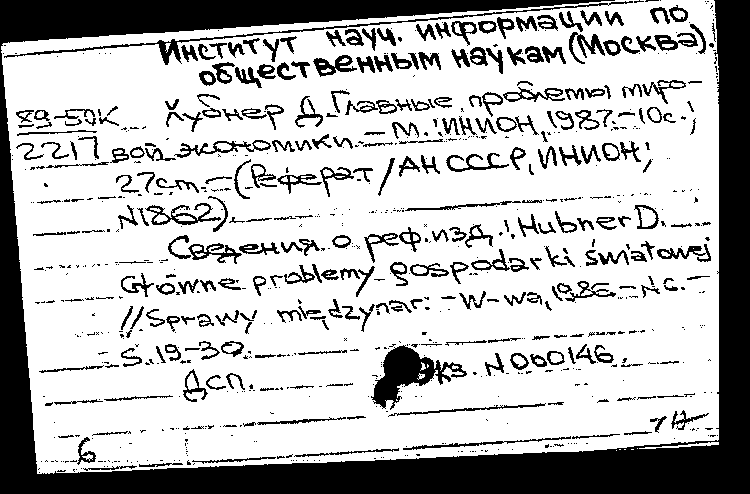 Институт науч. информации по
общественным наукам (Москва).
89-50К Хубнер Д. Главные проблемы миро-
2217 вой экономики. – М.: ИНИОН, 1987. – 10с.;
27см. – (Реферат / АН СССР, ИНИОН;
N1862).
Сведения о реф. изд.: Hubner D.
Główne problemy gospodarki światowej
// Sprawy międzynar. – W-wa, 1986. –
S. 19-30.
Дсп. Экз. N 000146.
6